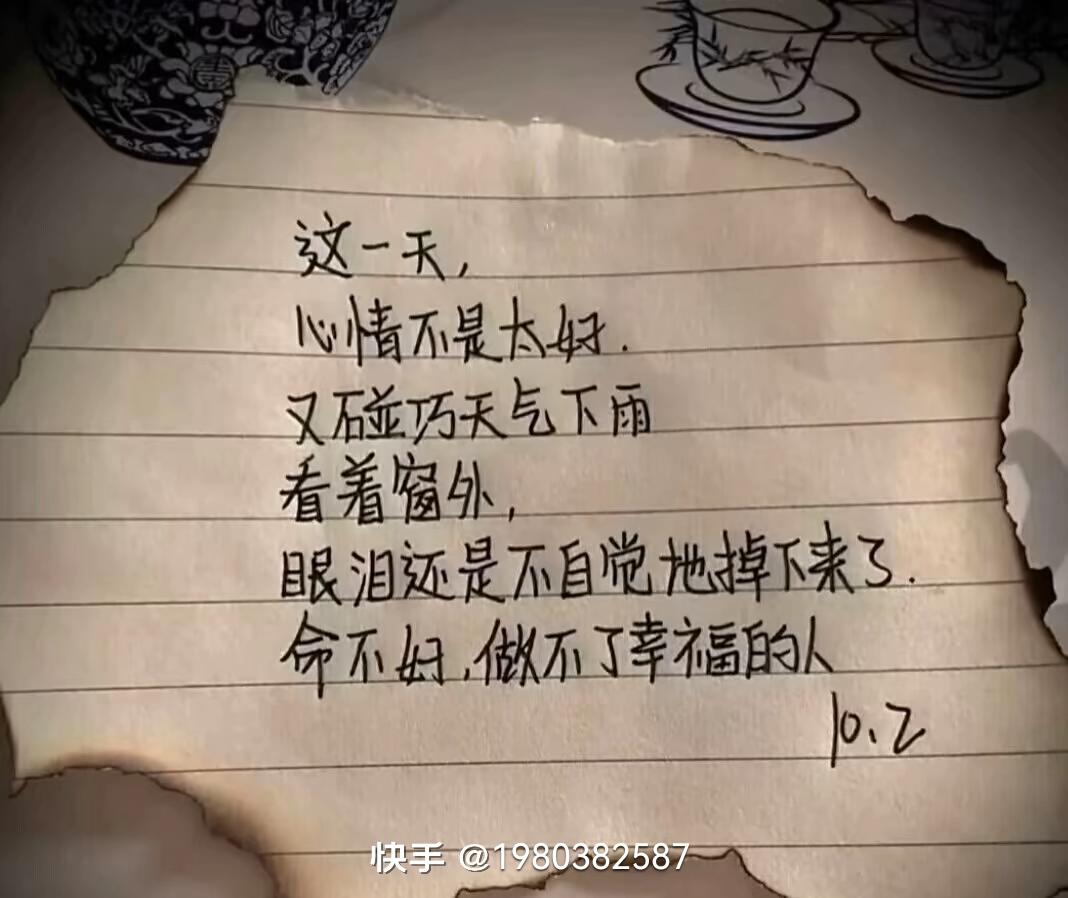 这一天，
心情不是太好.
又碰巧天气下雨
看着窗外，
眼泪还是不自觉地掉下来了.
命不好,做不了幸福的人
10.2
快手 @1980382587